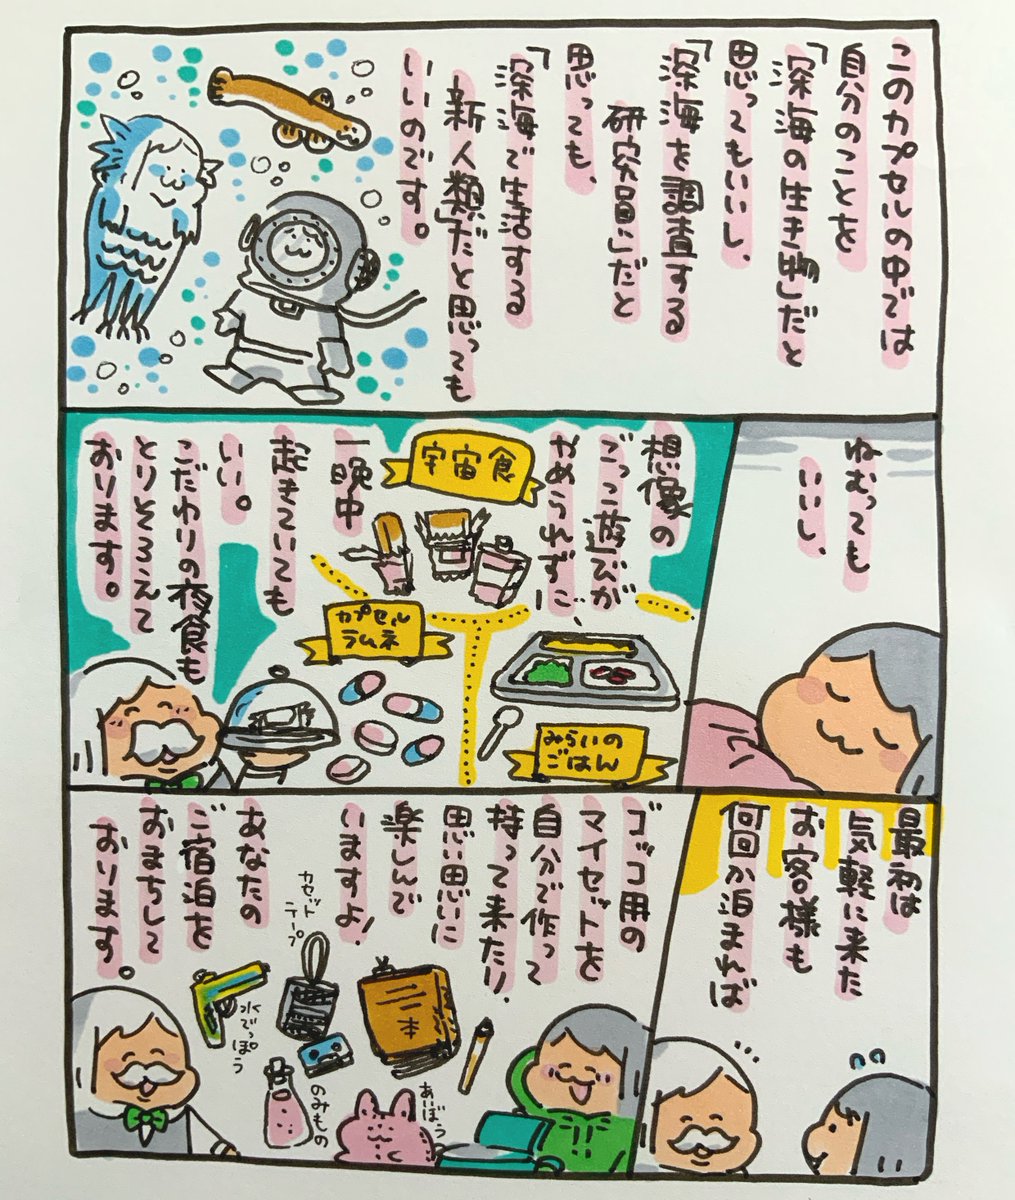 このカプセルの中では
自分のことを
「深海の生き物」だと
思ってもいいし、
「深海を調査する
研究員」だと
思っても、
「深海で生活する
新人類」だと思っても
いいのです。
ねむっても
いいし、
想像の
ごっこ遊びが
やめられずに、
一晩中
起きていても
いい。
こだわりの夜食も
とりそろえて
おります。
宇宙食
カプセル
ラムネ
みらいの
ごはん
最初は
気軽に来た
お客様も
何回か泊まれば
ゴッコ用の
マイセットを
自分で作って
持って来たり、
思い思いに
楽しんで
いますよ！
あなたの
ご宿泊を
おまちして
おります。
カセット
テープ
水でっぽう
のみもの
本
あいぼう